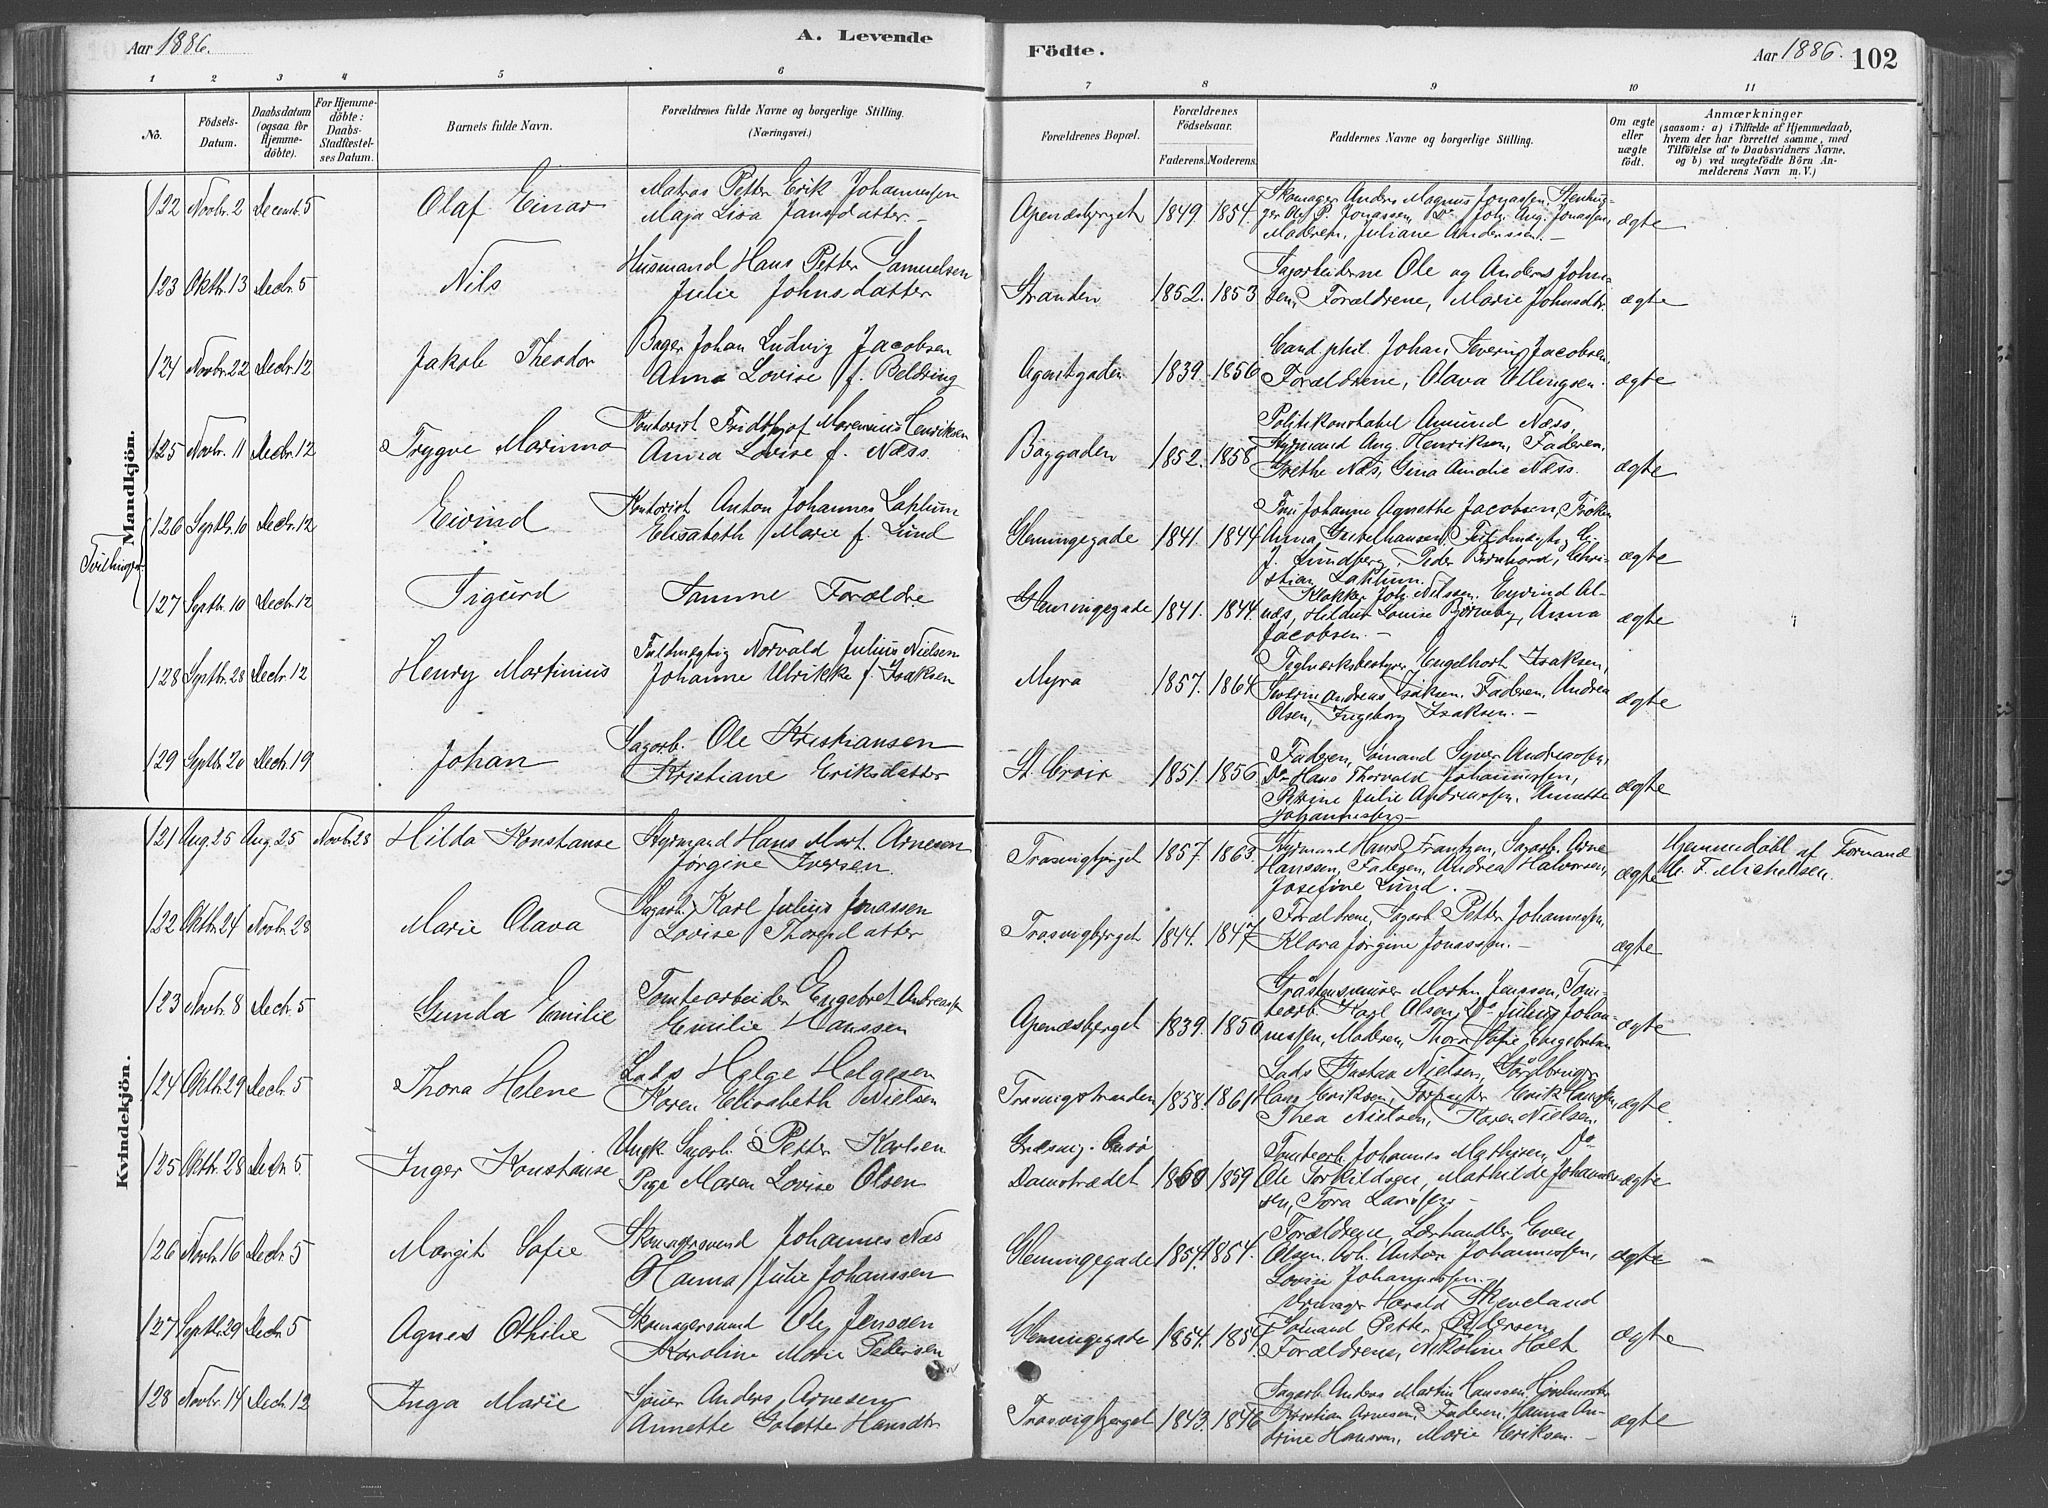 Aar 1886. A. Levende Födte. Aar 1886. 102
1 2 3 4 5 6 7 8 9 10 11
No.
Födsels-Datum.
Daabsdatum (ogsaa for Hjemmedöbte).
For Hjemmedöbte: Daabs-Stadfæstelses Datum.
Barnets fulde Navn.
Forældrenes fulde Navne og borgerlige Stilling. (Næringsvei.)
Forældrenes Bopæl.
Forældrenes Födselsaar.
Faderens. Moderens.
Faddernes Navne og borgerlige Stilling.
Om ægte eller uægte födt.
Anmærkninger
(saasom: a) i Tilfælde af Hjemmedaab,
hvem der har forrettet samme, med
Tilföielse af to Daabsvidners Navne,
og b) ved uægtefödte Börn Anmelderens Navn m. V.)
Mandkjön.
122 Novbr. 2 Decemb. 5 Olaf Einar
Matros Petter Erik Johannessen
Maja Lisa Jansdatter
Apenæsbjerget 1849 1854
Skomager Anders Magnus Jonassen, Stenhug-
ger Olof P. Jonassen, Do Joh. Aug. Jonassen,
Moderen, Juliane Anderssen. ægte
123 Oktbr. 13 Decbr. 5 Nils
Husmand Hans Petter Samuelsen
Julie Johnsdatter
Stranden 1852. 1853
Sagarbeiderne Ole og Anders John-
sen, Forældrene, Marie Johnsdtr. ægte
124 Novbr. 22 Decbr. 12 Jakob Theodor
Bager Johan Ludvig Jacobsen
Anna Lovise f. Beldring
Agentgaden 1839. 1856
Cand. phil. Johan Severin Jacobsen
Forældrene, Olava Ellingsen. ægte
125 Novbr. 11 Decbr. 12 Trygve Marinius
Kontorist Fridthjof Marenius Henriksen
Anna Lovise f. Næss.
Baggaden 1852. 1858
Politikonstabel Amund Næss,
Styrmand Aug. Henriksen, Faderen,
Grethe Næs, Gina Amalie Næss. ægte
Tvillinger
126 Septbr. 10 Decbr. 12 Eivind
Kontorist Anton Johannes Laphum
Elisabeth Marie f. Lund
Glemmingegade 1841. 1844
Fru Johanne Agnethe Jacobsen, Frøken
Anna Gestelhausen, Fuldmægtig
J. Lundberg, Peder Bernhard, Chri-
stian Laphum. ægte
127 Septbr. 10 Decbr. 12 Sigurd
Samme Forældre
Glemmingegade 1841. 1844
Klokker Joh. Nilssen, Eyvind Al-
næs, Hildur Louise Bjørneby, Anna
Jacobsen. ægte
128 Septbr. 28 Decbr. 12 Henry Martinius
Fuldmægtig Norvald Julius Nielsen
Johanne Ulrikke f. Isaksen
Myra 1857. 1864
Teglværksbestyrer Engelhart Isaksen,
Severin Andreas Isaksen. Faderen, Andrea
Olsen, Ingeborg Isaksen. ægte
129 Septbr. 20 Decbr. 19 Johan
Sagarb. Ole Kristiansen
Kristiane Eriksdatter
St. Croix 1851. 1856
Faderen, Sømand Syver Andreassen,
Do Hans Thorvald Johannessen,
Julie Andreassen, Annette
Johannesen ægte
Kvindekjön.
121 Aug. 25 Aug. 25 Novbr. 28 Hilda Konstanse
Styrmand Hans Mart. Arnesen
Jørgine Iversen.
Trosvigbjerget 1857. 1863
Styrmand Hans Frantzen, Sagarb. Arne
Hanssen, Faderen, Andrea Halvorsen,
Josefine Lund. ægte
Hjemmedøbt af Formand
M. F. Michelsen.
122 Oktbr. 24 Novbr. 28 Marie Olava
Sagarb. Karl Julius Jonassen
Lovise Thorsdatter
Trosvigbjerget 1844. 1847
Forældrene, Sagarb. Petter Johannessen,
Klara Jørgine Jonassen. ægte
123 Novbr. 8 Decbr. 5 Gunda Emilie
Tomtearbeider Engebret Andreassen
Emilie Hanssen
Apenæsberget 1839. 1850
Gråstensmurer Martin Jenssen, Tom-
tearb. Karl Olsen, Do Julius Johan-
nessen, Moderen, Thora Sofie Engebretsen ægte
124 Oktbr. 29 Decbr. 5 Thora Helene
Lods Helge Helgesen
Karen Elisabeth Nielsen
Trosvigstranden 1858. 1861
Lods Gustav Nielsen, Gårdbruger
Hans Eriksen, Forpagter Erik Hansen,
Thea Nielsen, Karen Nielsen. ægte.
125 Oktbr. 28 Decbr. 5 Inger Konstanse
Ungk. Sagarb. Petter Karlsen
Pige Maren Lovise Olsen
Græsvig. Onsø
Damstrædet 1860 1859
Tomtearb. Johannes Mathisen, Do
Ole Torkildsen, Mathilde Johannes-
sen, Tora Larsen ægte
126 Novbr. 16 Decbr. 5 Margit Sofie
Skomagersvend Johannes Næs
Hanna Julie Johanssen
Glemmingegade 1854. 1854.
Forældrene, Lærhandler Even
Olsen. Arb. Anton Johannessen,
Lovise Johannessen. ægte
127 Septbr. 29 Decbr. 5 Agnes Othilie
Skomagersvend Ole Jenssen
Karoline Marie Pedersen
Glemmingegade 1854. 1854
Urmager Harald Skjeveland
Sømand Petter Pedersen
Forældrene, Nikoline Holt ægte
128 Novbr. 14 Decbr. 12 Inga Marie
Snier Anders Arnesen
Annette Golotte Hansdtr.
Trosvigbjerget 1843. 1846
Sagarb. Anders Martin Hanssen,
Kristian Arnesen, Faderen, Hanna An-
drine Hansen, Marie Eriksen. ægte